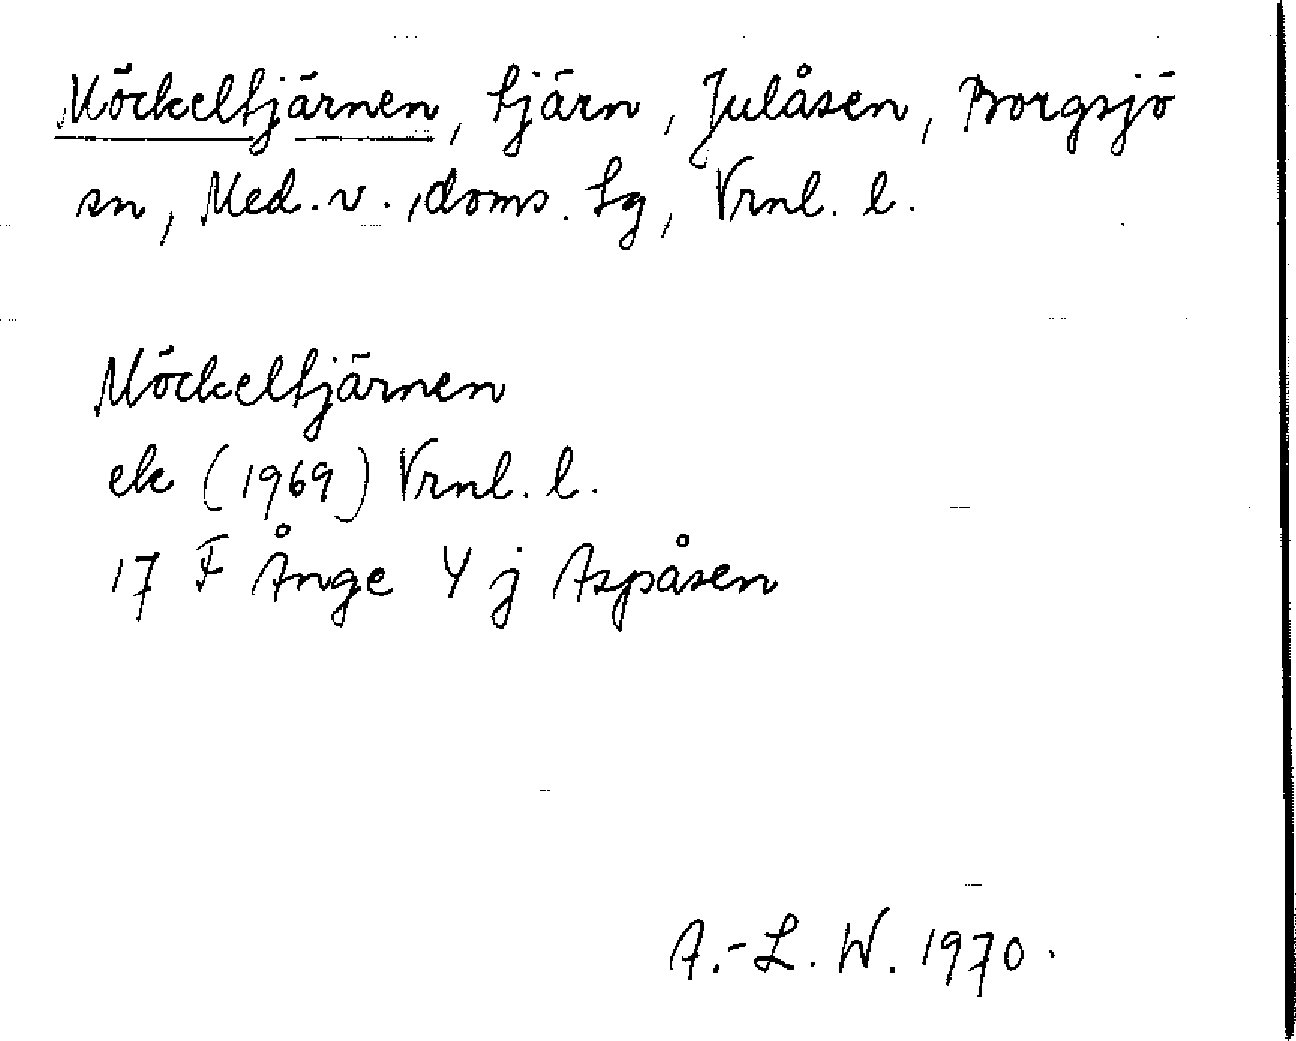 Möckeltjärnen, tjärn, Julåsen, Borgsjö
sn, Med. v., doms. tg, Vrnl. l.
Möckeltjärnen
ek (1969) Vrnl. l.
17 F Ånge 4 j Aspåsen
A.-L. W. 1970.